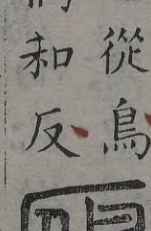 從鳥
和反